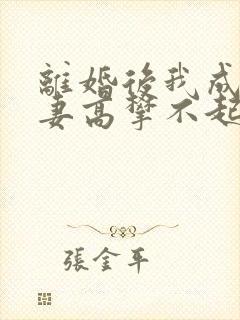 離婚後我成
妻高攀不起
張金平